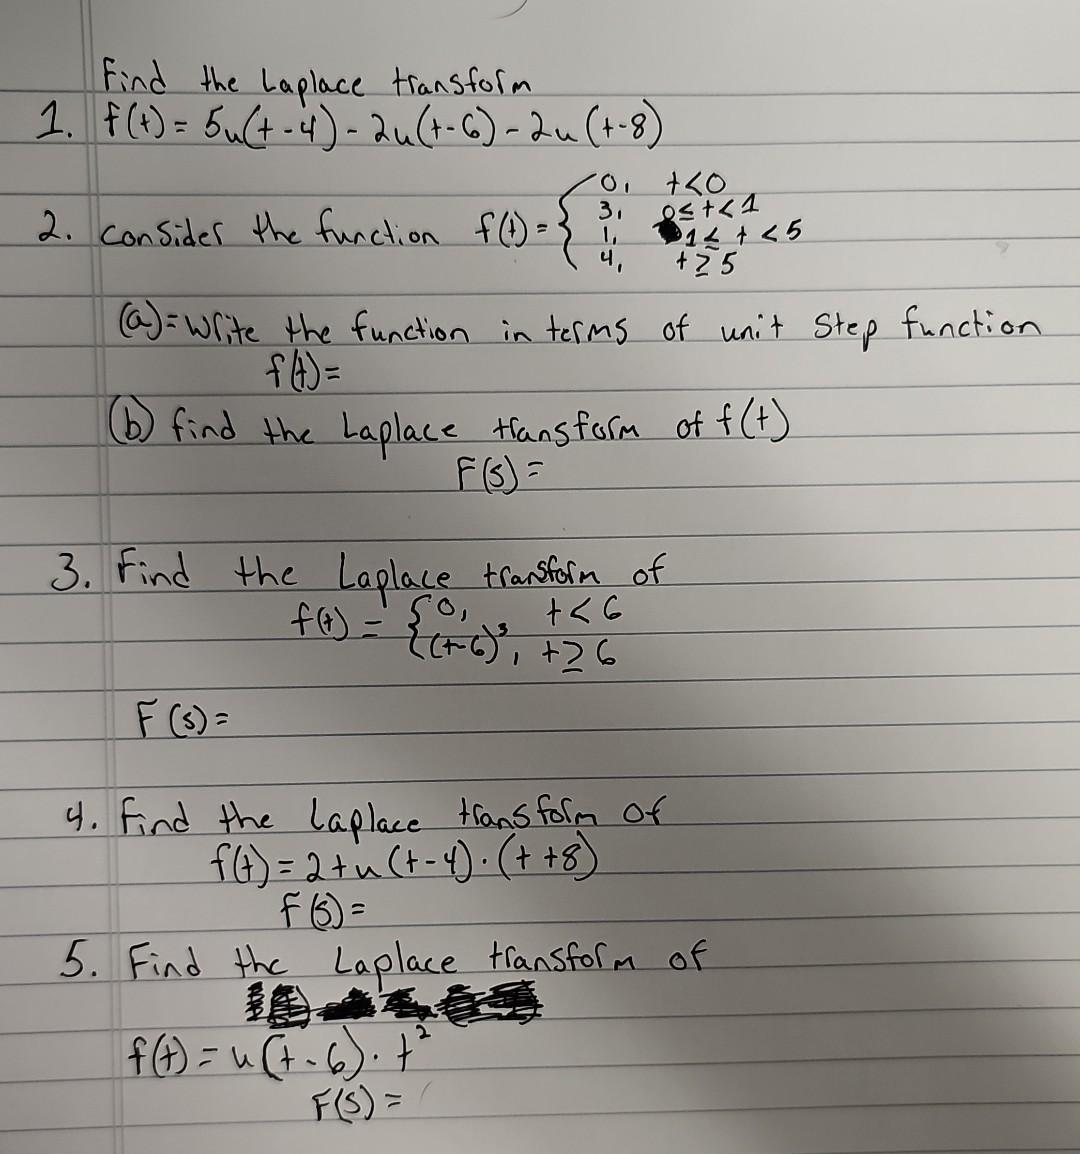 Find the Laplace transform
1. f(t) = 5u(t-4) - 2u(t-6) - 2u(t-8)
2. consider the function f(t) = { 0, t<0
3, 0≤t<1
1, 1≤t<5
4, t≥5
(a)= write the function in terms of unit step function
f(t)=
(b) find the Laplace transform of f(t)
F(s)=
3. Find the Laplace transform of
f(t) = { 0, t<6
(t-6)³, t≥6
F(s)=
4. Find the Laplace transform of
f(t) = 2+u(t-4)·(t+8)
F(s)=
5. Find the Laplace transform of
f(t) = u(t-6)·t²
F(s)=